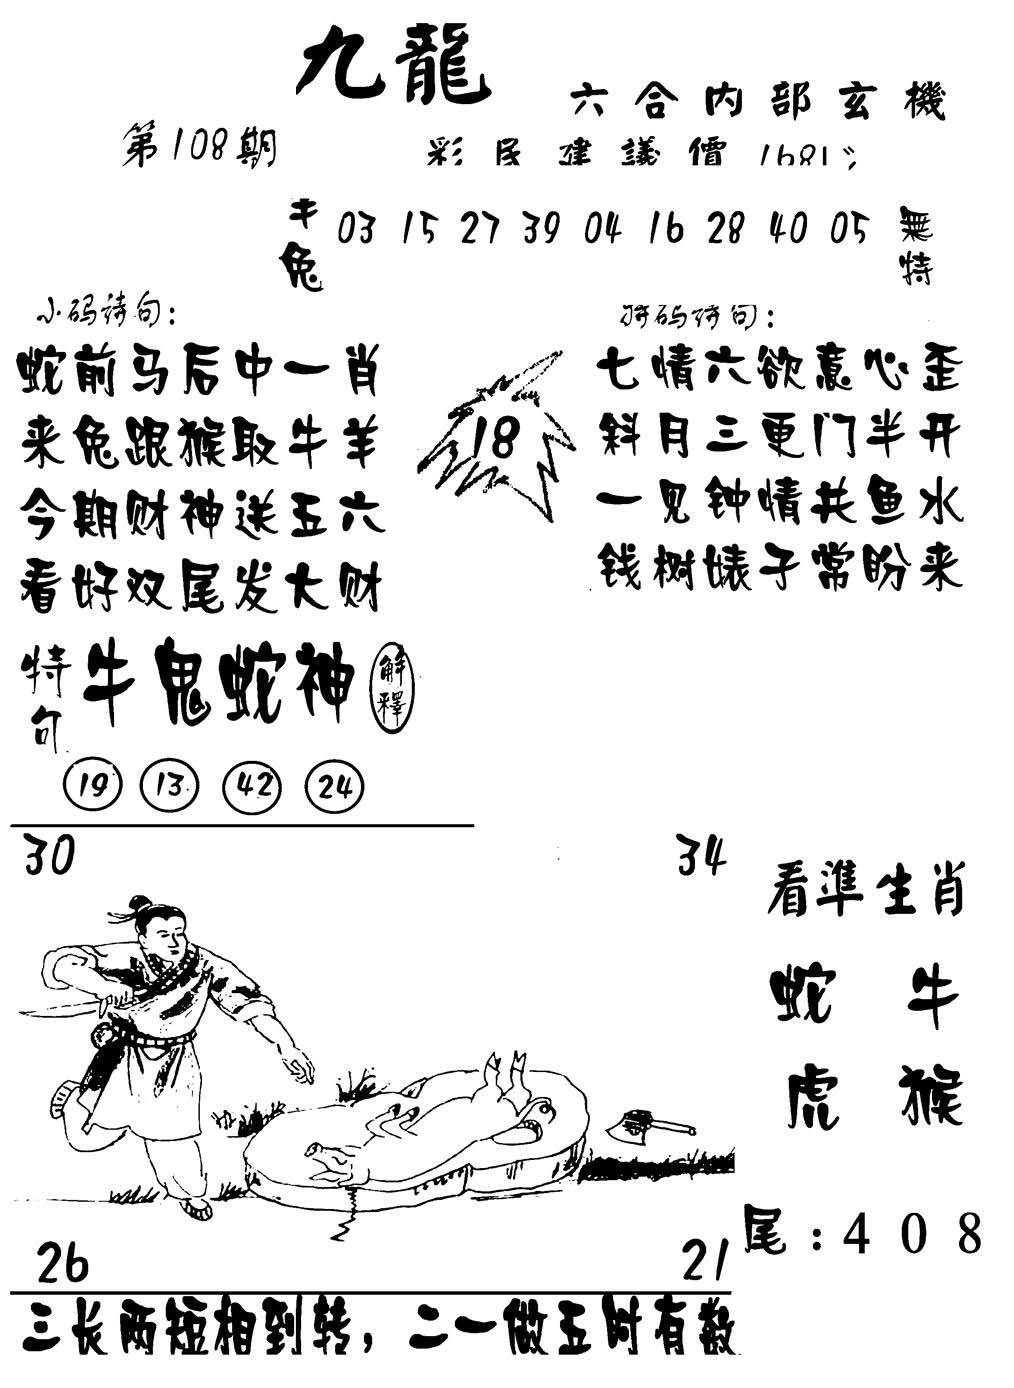 九龍
六合内部玄機
第108期
彩民建議價
牛兔 03 15 27 39 04 16 28 40 05 無特
小码诗句：
蛇前马后中一肖
来兔跟猴取牛羊
今期财神送五六
看好双尾发大财
18
特码诗句：
七情六欲意心歪
斜月三更门半开
一见钟情共鱼水
钱树婊子常盼来
特句 牛鬼蛇神 解釋
19 13 42 24
30 34
看準生肖
蛇 牛
虎 猴
尾：4 0 8
26 21
三长两短相到转，二一做五时有数